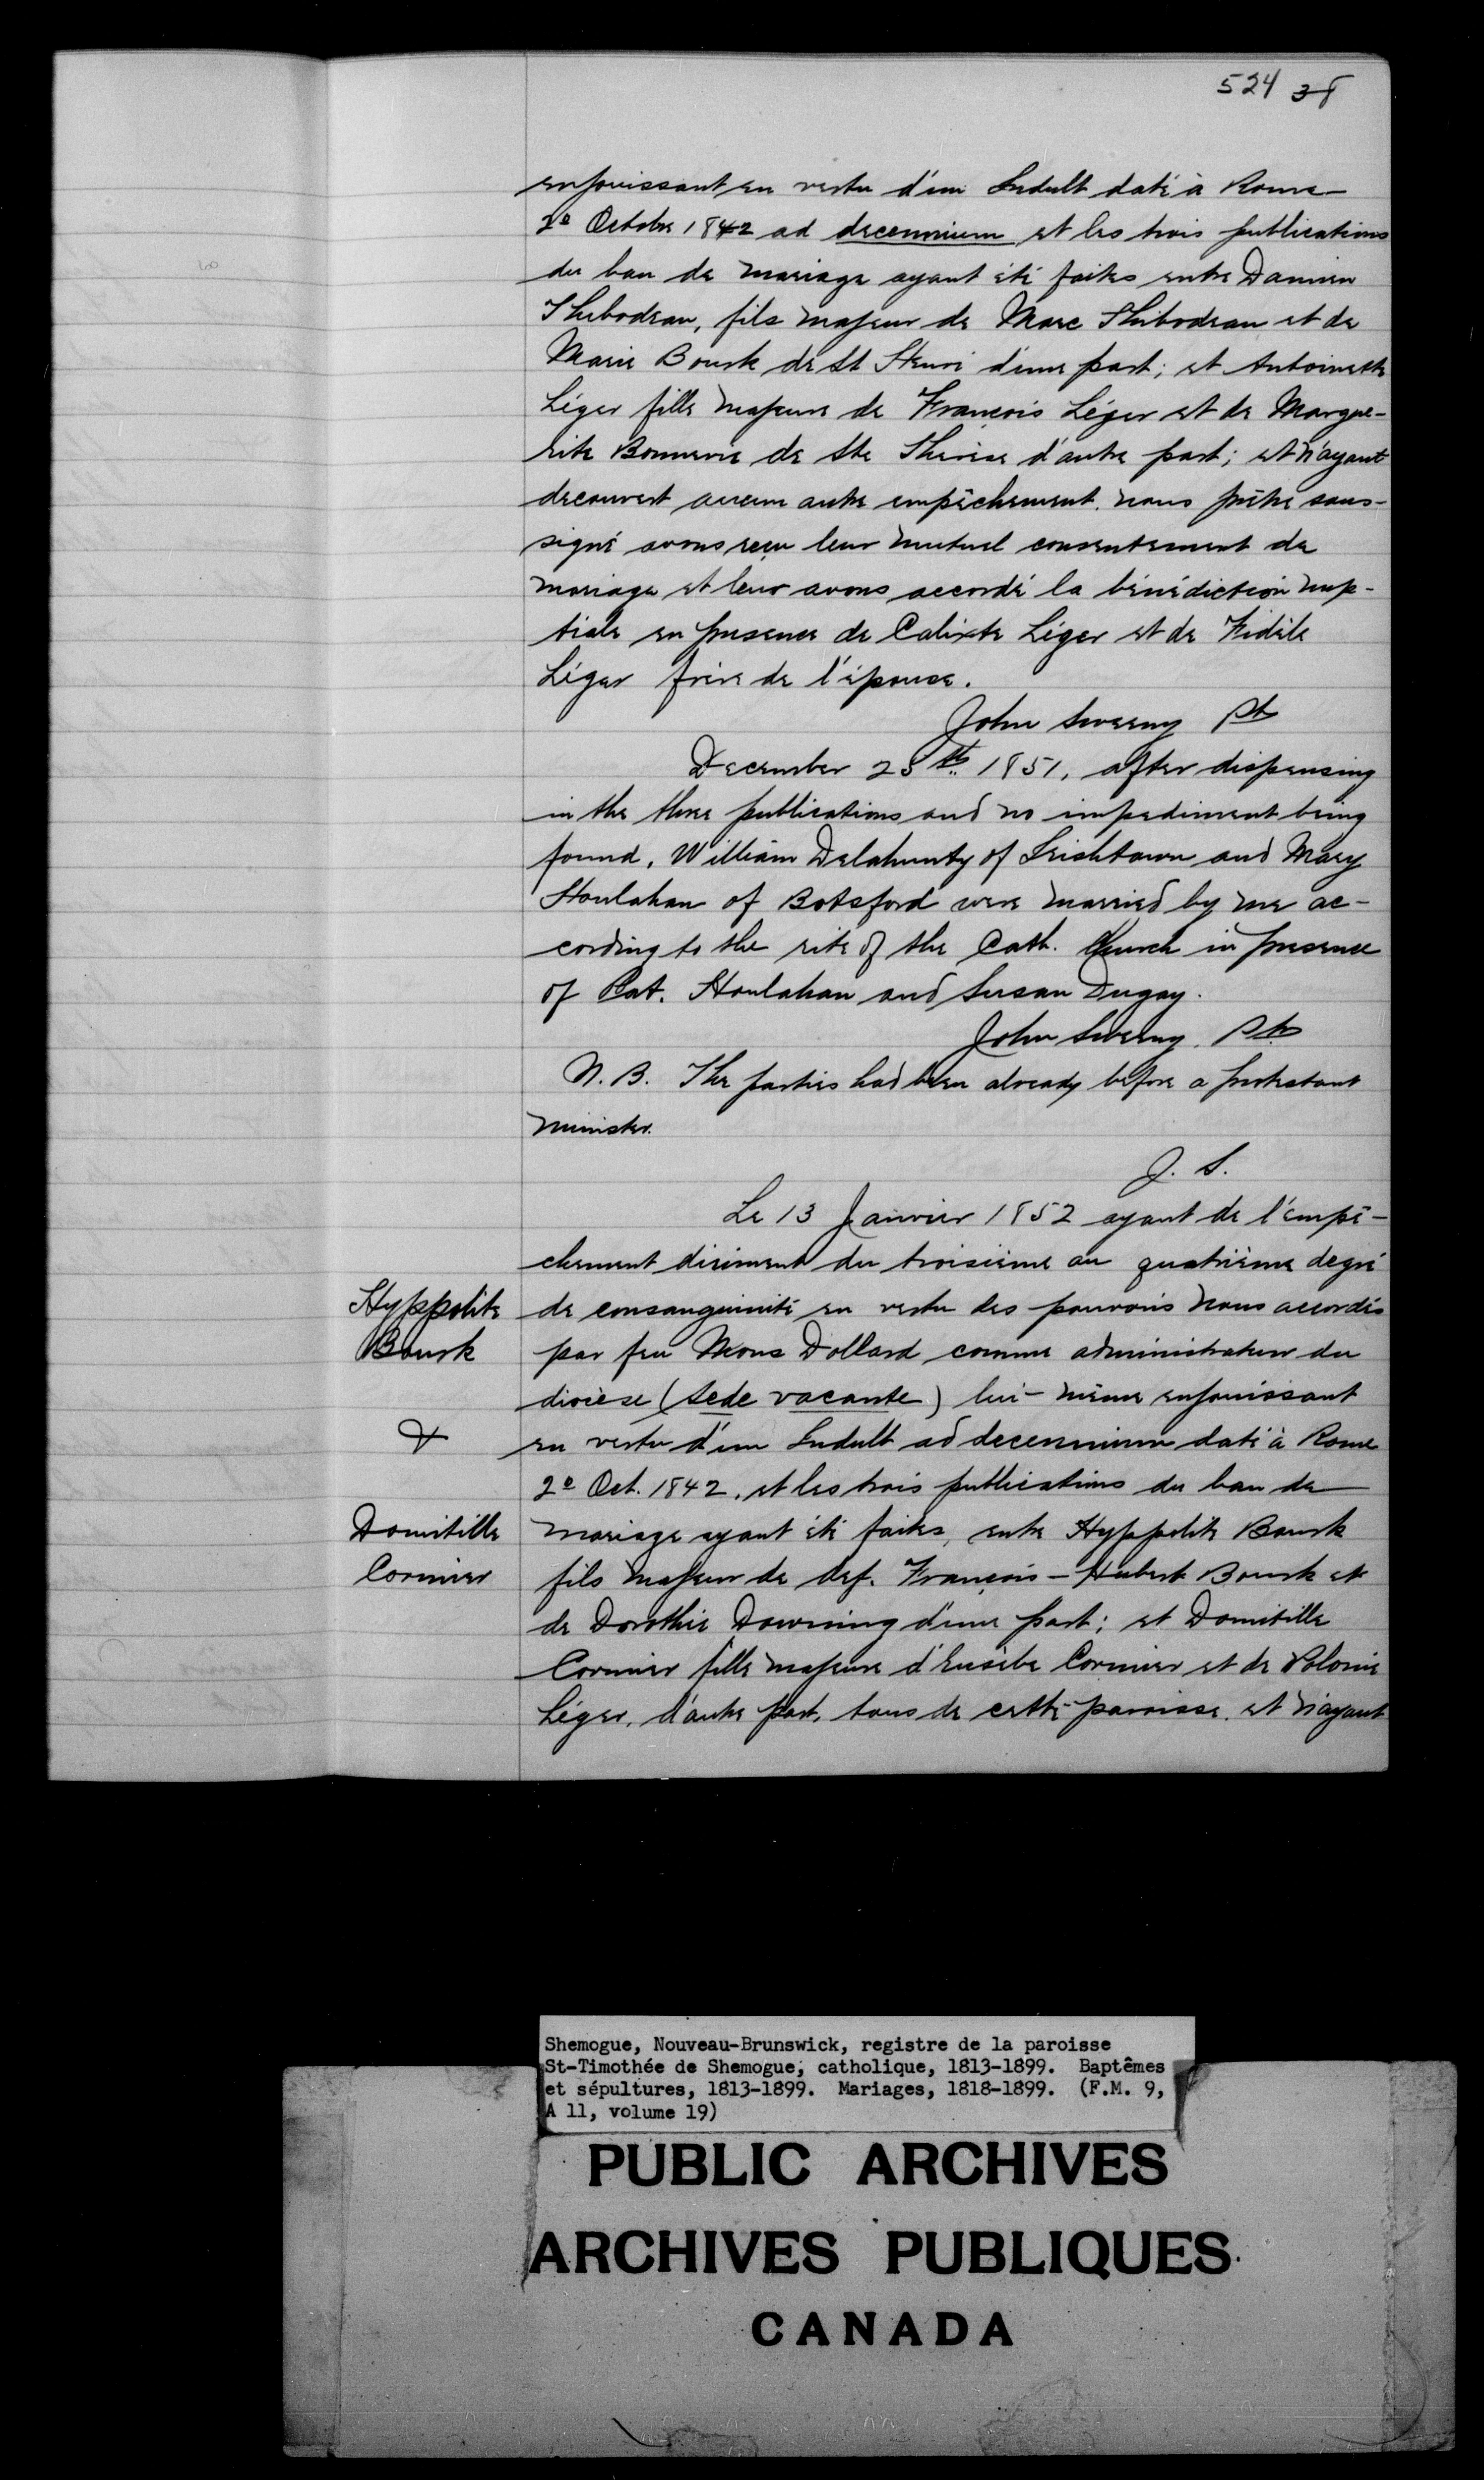 524 38
enjouissant en vertu d'un Indult daté à Rome
2º Octobre 1842 ad decennium et les trois publications
du ban de mariage ayant été faites entre Damien
Thibodeau, fils majeur de Marc Thibodeau et de
Marie Bourk de St Henri d'une part; et Antoinette
Léger fille majeure de François Léger et de Margue-
rite Bonnevie de Ste Thérèse d'autre part; et n'ayant
decouvert aucun autre empêchement, nous prêtre sous-
signé avons reçu leur mutuel consentement de
mariage et leur avons accordé la bénédiction nup-
tiale en presence de Calixte Léger et de Fidèle
Léger frère de l'épouse.
John Sweeny Pt
December 28th 1851, after dispensing
in the three publications and no impediment being
found, William Delahunty of Irishtown and Mary
Houlahan of Botsford were married by me ac-
cording to the rite of the Cath. Church in presence
of Pat. Houlahan and Susan Dugay.
John Sweeny. Pt
N.B. The parties had been already before a protestant
minister.
J. S.
Le 13 Janvier 1852 ayant de l'empê-
chement dirimant du troisième au quatrième degré
Hyppolite
Bourk
&
Domitille
Cormier
de consanguinité en vertu des pouvoirs nous accordés
par feu Mons Dollard comme administrateur du
diocèse (sede vacante) lui-même enjouissant
en vertu d'un Indult ad decennium daté à Rome
2º Oct. 1842, et les trois publications du ban de
mariage ayant été faites, entre Hyppolite Bourk
fils majeur de def. François-Hubert Bourk et
de Dorothie Downing d'une part; et Domitille
Cormier fille majeure d'Eusèbe Cormier et de Polonie
Léger, d'autre part, tous de cette paroisse, et n'ayant
Shemogue, Nouveau-Brunswick, registre de la paroisse
St-Timothée de Shemogue; catholique, 1813-1899. Baptêmes
et sépultures, 1813-1899. Mariages, 1818-1899. (F.M. 9,
A 11, volume 19)
PUBLIC ARCHIVES
ARCHIVES PUBLIQUES
CANADA